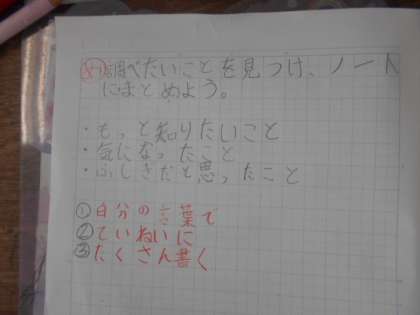 め 調べたいことを見つけ、ノート
にまとめよう。
・もっと知りたいこと
・気になったこと
・ふしぎだと思ったこと
①自分の言葉で
②ていねいに
③たくさん書く